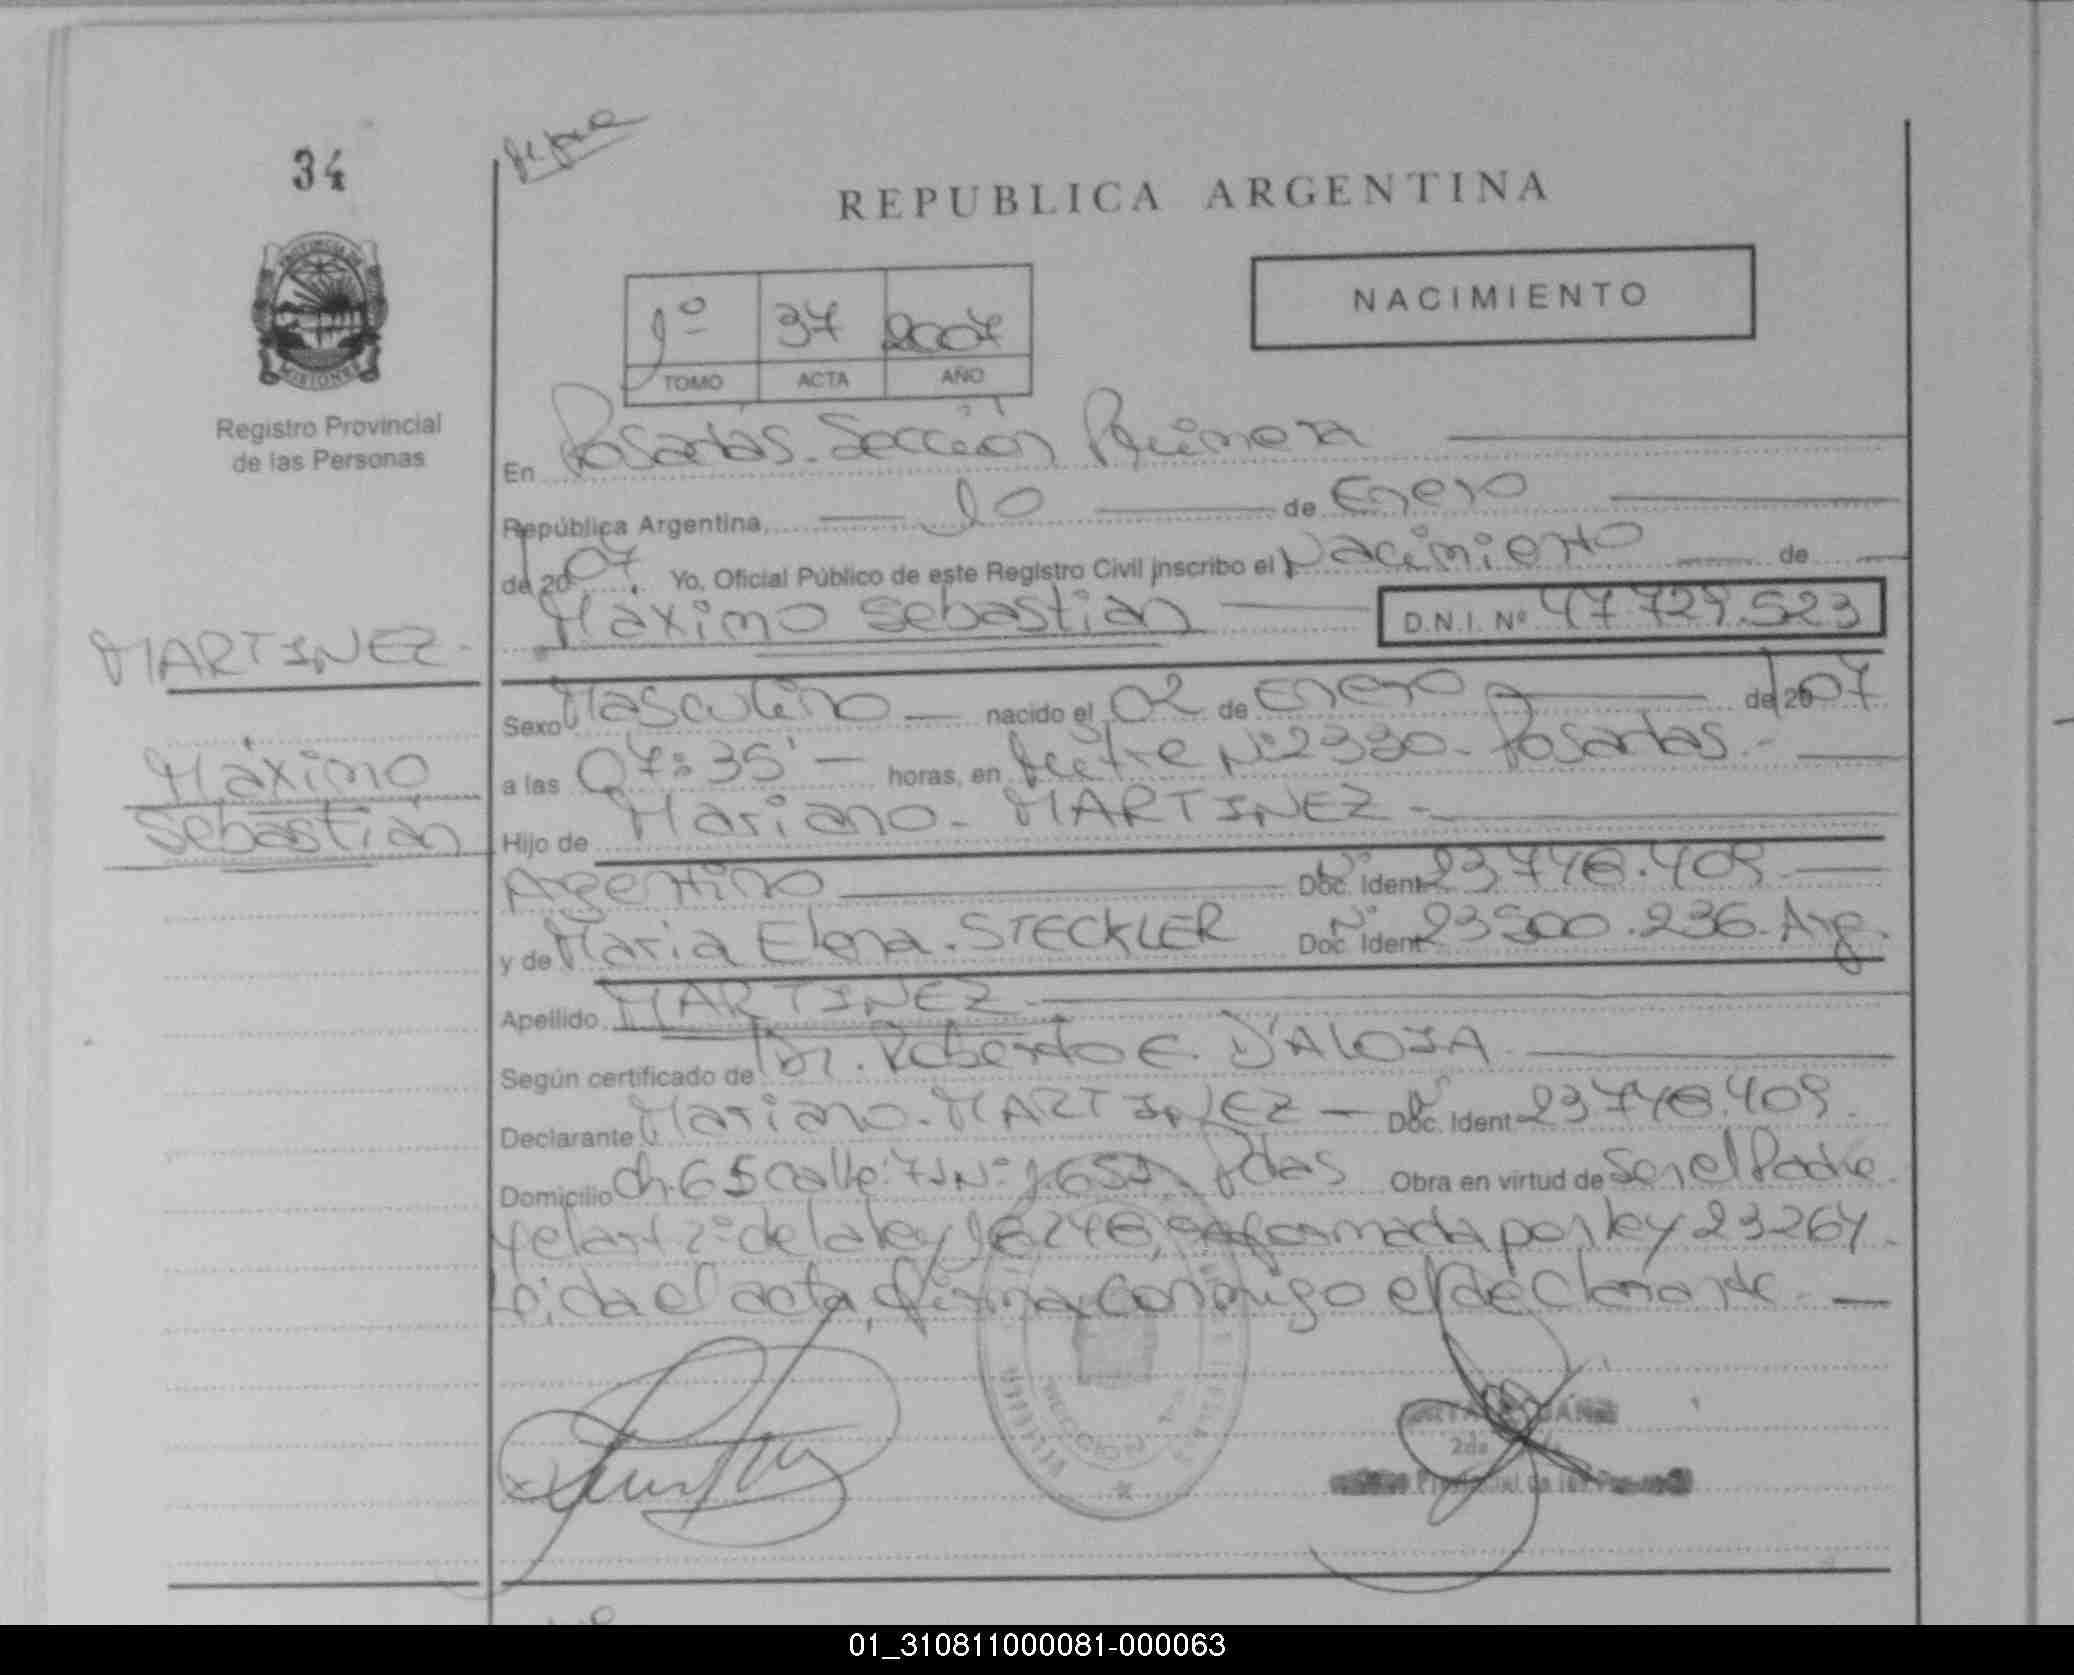 34
REPUBLICA ARGENTINA
NACIMIENTO
1º 37 2007
TOMO ACTA AÑO
PROVINCIA DE MISIONES
Registro Provincial
de las Personas
En Posadas. Sección Primera
República Argentina, 10 de Enero
de 2007. Yo, Oficial Público de este Registro Civil inscribo el Nacimiento de
Máximo Sebastián D.N.I. Nº 47.729.523
MARTINEZ.
Máximo
Sebastián
Sexo Masculino nacido el 02 de Enero de 2007
a las 07:35' horas, en Mitre Nº 2330. Posadas.
Hijo de Mariano. MARTINEZ.
Argentino Doc. Ident Nº 23.748.409
y de Maria Elena. STECKLER Doc. Ident Nº 23500.236. Arg.
Apellido MARTINEZ
Según certificado de Dr. Roberto E. D'ALOIA
Declarante Mariano. MARTINEZ Doc. Ident Nº 23748.409.
Domicilio Ch. 65 Calle: 71 Nº: Pdas Obra en virtud de Ser el Padre
y el art 2º de la ley 18248, reformada por ley 23264.
Leida el acta, firma conmigo el declarante.
SECCION
2da
Provincial de las
01_310811000081-000063